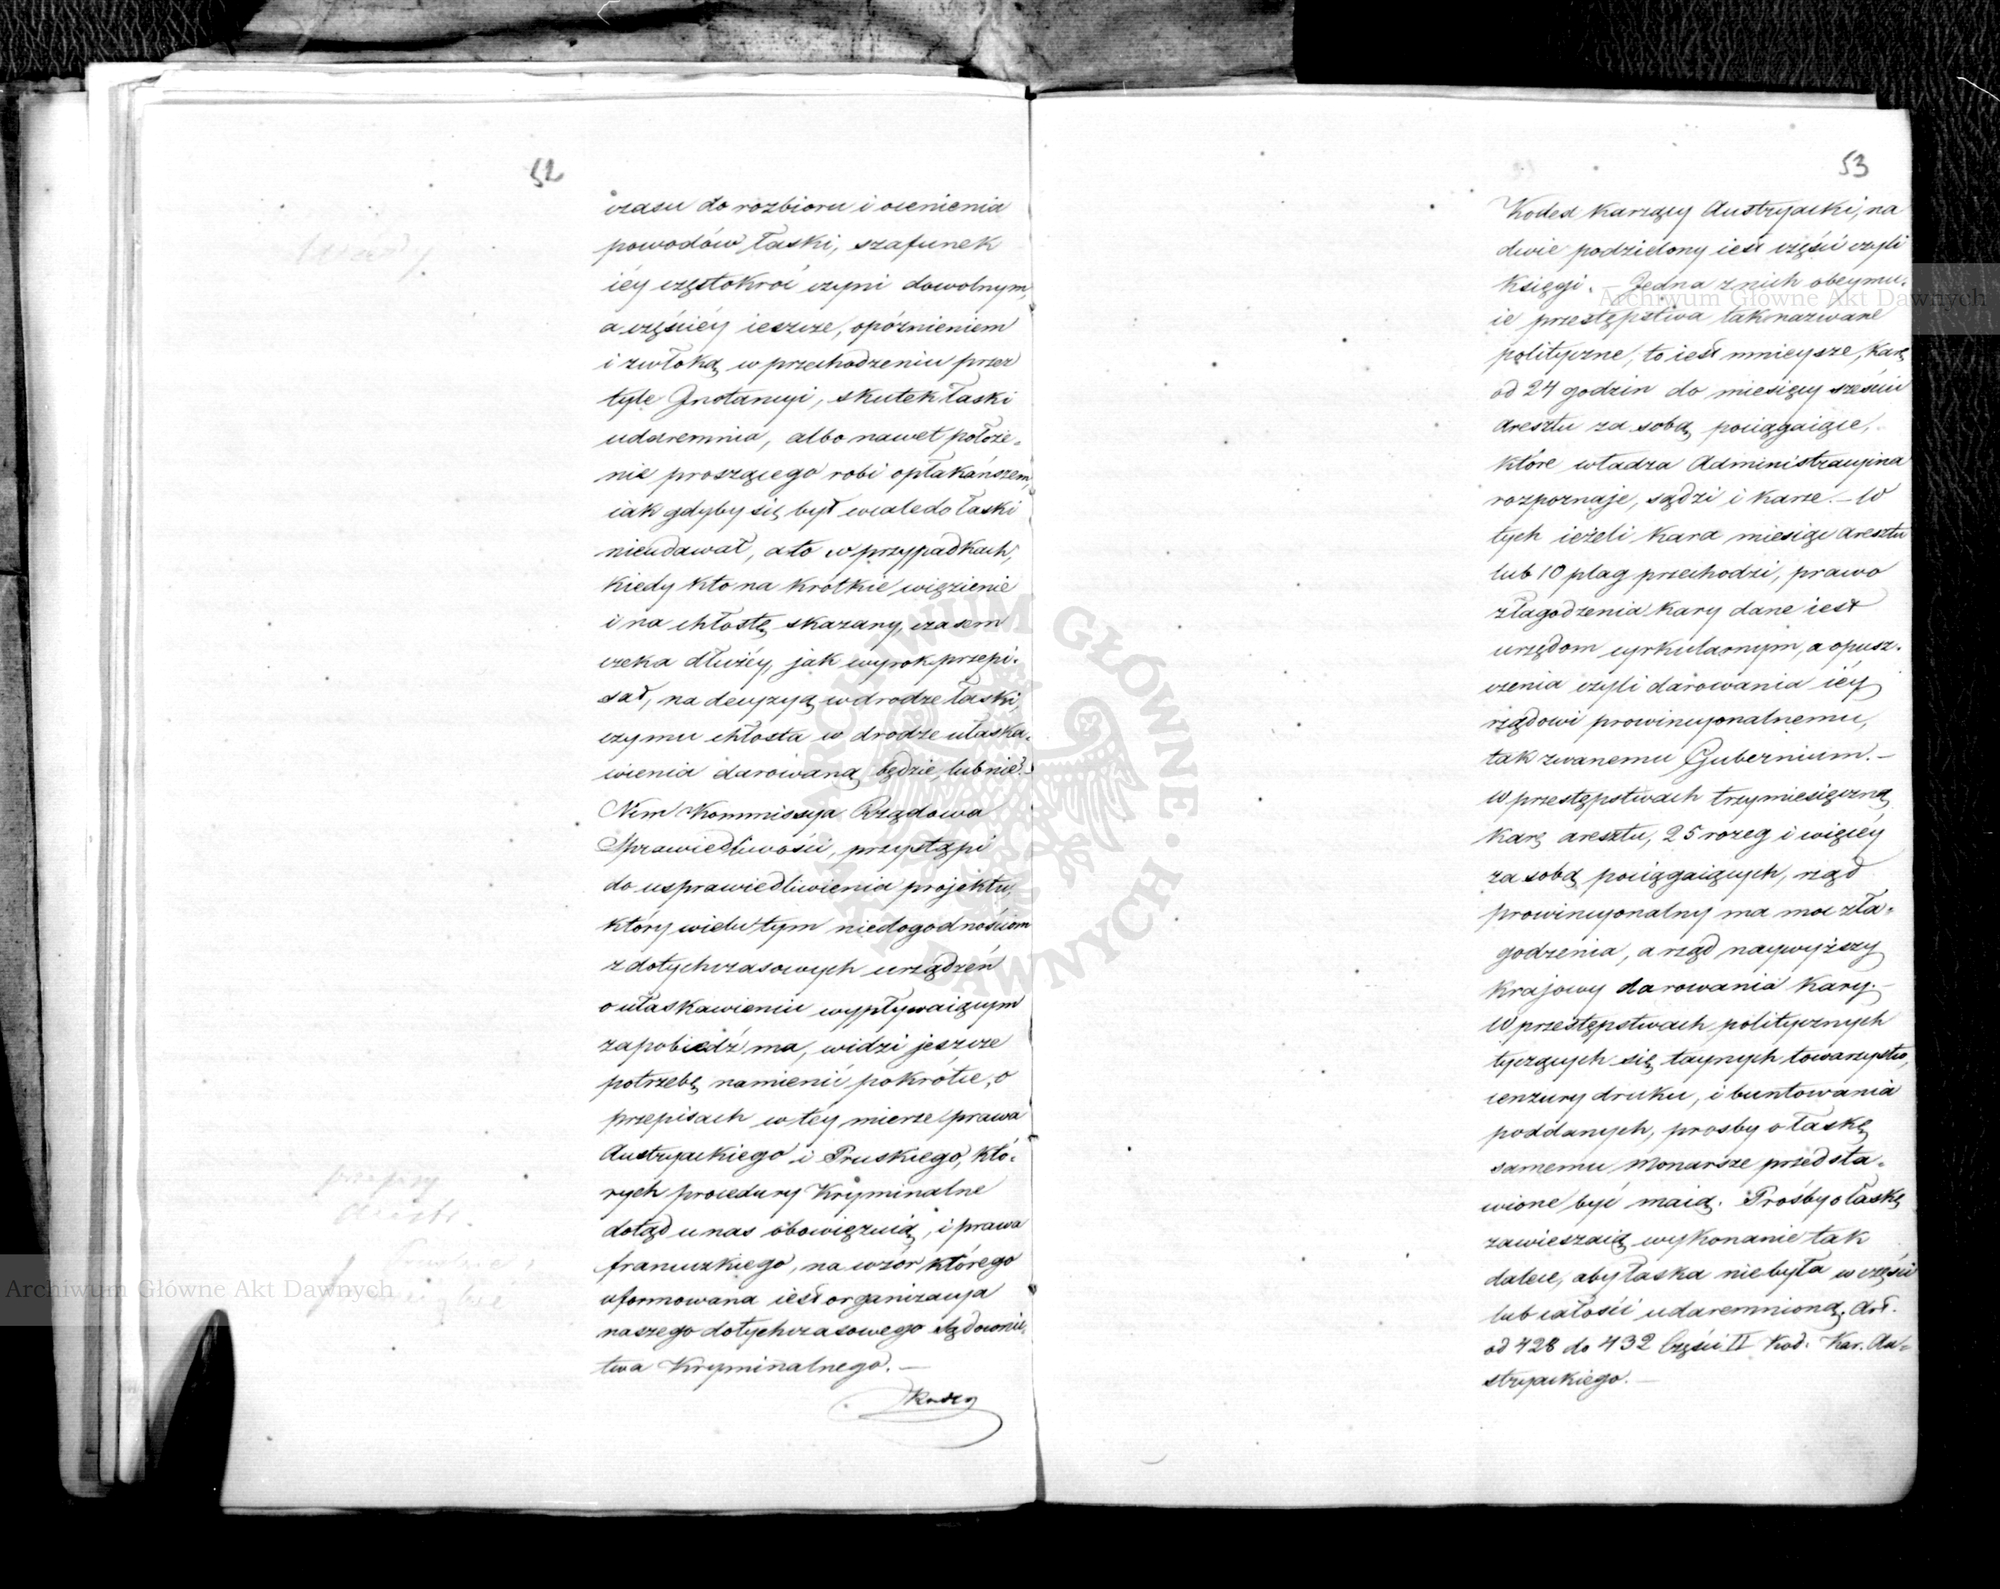 52
czasu do rozbioru i ocenienia
powodów łaski, szafunek
iéy częstokroć czyni dowolnym,
a częściéy ieszcze, opóźnieniem
i zwłoką w przechodzeniu przez
tyle Instancyi, skutek łaski
udaremnia, albo nawet położe-
nie proszącego robi opłakańszem,
iak gdyby się był wcale do łaski
nieudawał, a to w przypadkach,
kiedy kto na krótkie więzienie
i na chłostę skazany, czasem
czeka dłużéy, jak wyrok przepi-
sał, na decyzyą w drodze łaski,
czy mu chłosta w drodze ułaska-
wienia darowaną będzie, lub nie.-
Nim Kommissya Rządowa
Sprawiedliwości, przystąpi
do usprawiedliwienia projektu,
który wielu tym niedogodnościom
z dotychczasowych urządzeń
o ułaskawieniu wypływaiącym
zapobiedź ma, widzi jeszcze
potrzebę namienić pokrótce, o
przepisach w téy mierze prawa
Austryackiego i Pruskiego, któ-
rych procedury Kryminalne
dotąd u nas obowięzuią, i prawa
francuzkiego, na wzór, którego
uformowana iest organizacya
naszego dotychczasowego Sądownic-
twa Kryminalnego. —
53
Kodex karzący Austryacki, na
dwie podzielony iest części czyli
księgi. — Jedna z nich obeymu-
ie przestępstwa tak nazwane
polityczne, to iest mnieysze, karę
od 24 godzin do miesięcy sześciu
aresztu za sobą pociągaiące,
które władza Administracyina
rozpoznaje, sądzi i karze. — W
tych ieżeli kara miesiąc aresztu
lub 10 plag przechodzi, prawo
złagodzenia kary dane iest
urzędom cyrkularnym, a opusz-
czenia czyli darowania iéy
rządowi prowincyonalnemu,
tak zwanemu Gubernium. —
W przestępstwach trzymiesięczną
karę aresztu, 25 rozeg i więcéy
za sobą pociągaiących, rząd
prowincyonalny ma moc zła-
godzenia, a rząd naywyższy
krajowy darowania kary. —
W przestępstwach politycznych
tyczących się taynych towarzystw,
cenzury druku, i buntowania
poddanych, prośby o łaskę
samemu Monarsze przedsta-
wione być maią. Prośby o łaskę
zawieszaią wykonanie tak
dalece, aby łaska nie była w części
lub całości udaremnioną. Art.
od 428 do 432 Części II Kod. Kar. Au-
stryackiego. —
Archiwum Główne Akt Dawnych
Archiwum Główne Akt Dawnych
ARCHIWUM GŁÓWNE AKT DAWNYCH